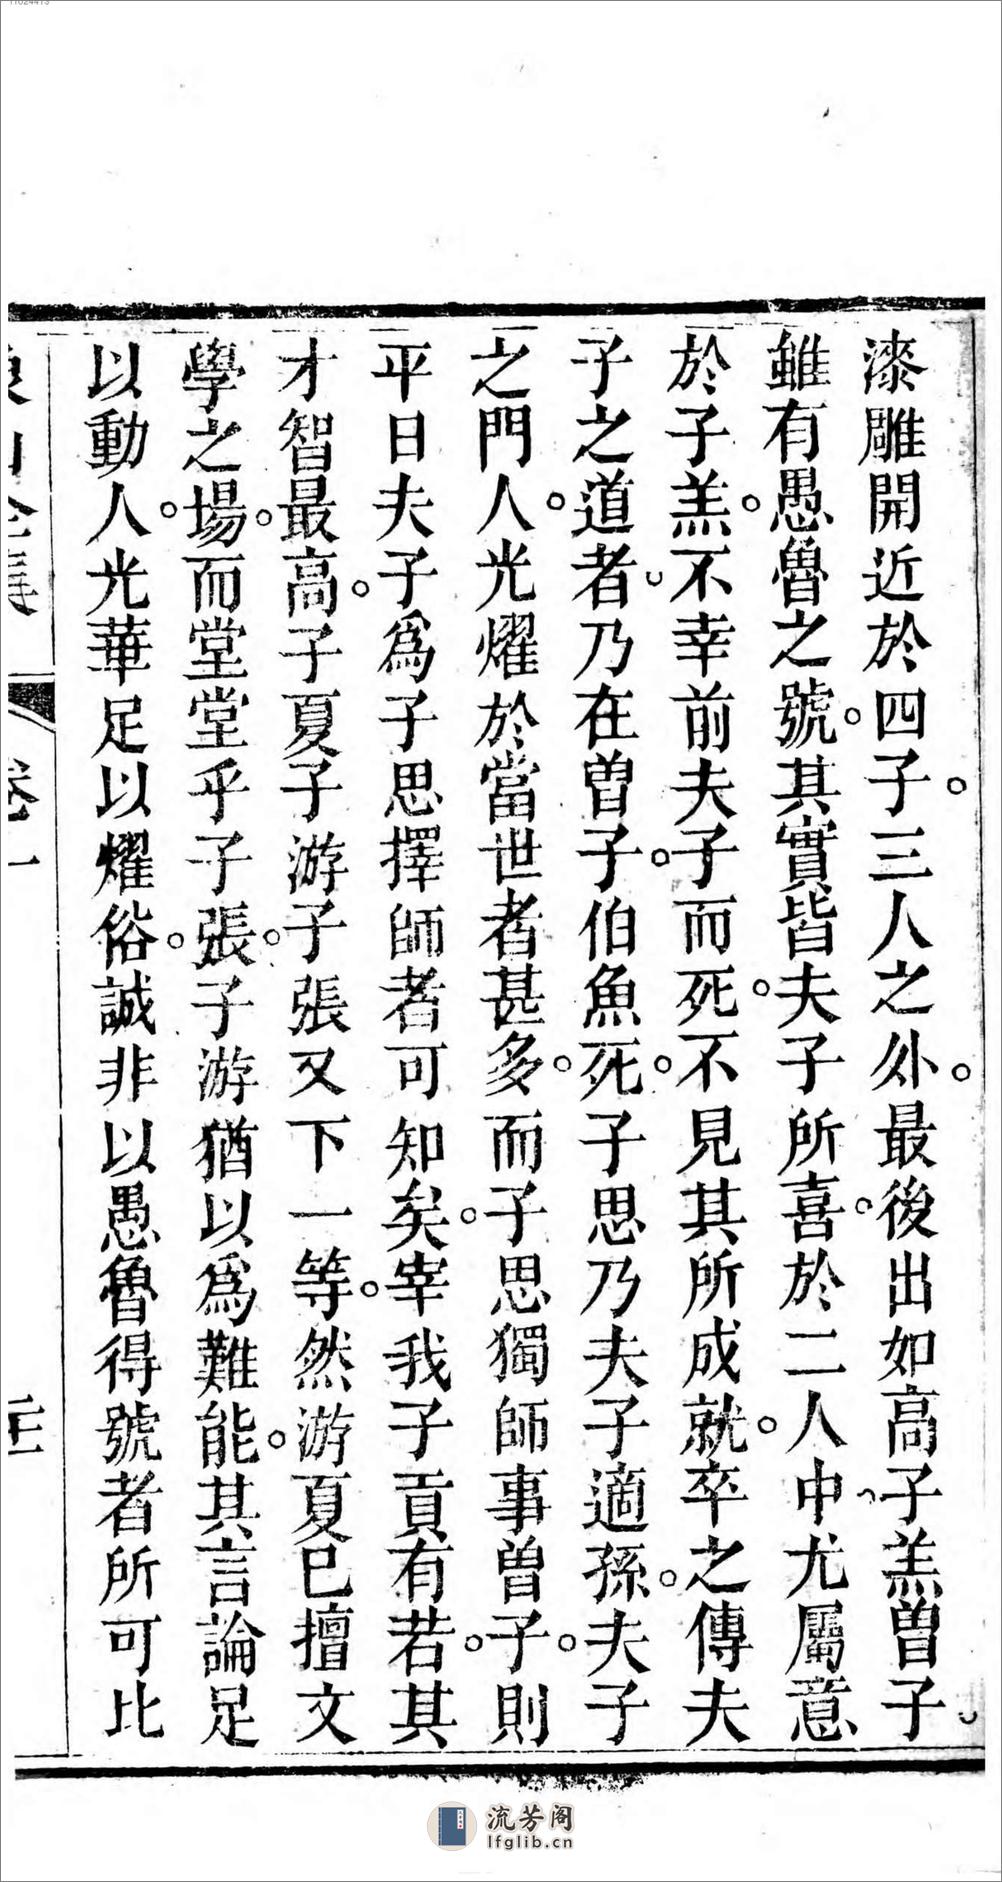 漆雕開近於四子三人之外最後出如高子羔曽子
雖有愚魯之號其實皆夫子所喜於二人中尤屬意
於子羔不幸前夫子而死不見其所成就卒之傳夫
子之道者乃在曽子伯魚死子思乃夫子適孫夫子
之門人光耀於當世者甚多而子思獨師事曽子則
平日夫子爲子思擇師者可知矣宰我子貢有若其
才智最高子夏子游子張又下一等然游夏已擅文
學之場而堂堂乎子張子游猶以爲難能其言論足
以動人光華足以耀俗誠非以愚魯得號者所可比
卷一
流芳阁
lfglib.cn
11024413